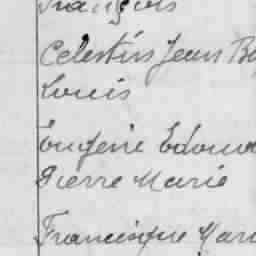 François
Celestin Jean B
Louis
Eugène Edoua
Pierre Marie
Francisque Mari